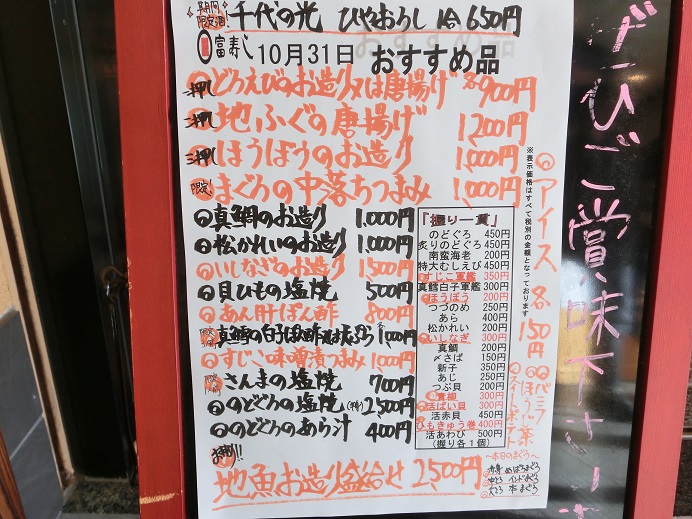 期間限定酒! 千代の光 ひやおろし 1合 650円
富寿し 10月31日 おすすめ品
一押し どろえびのお造り又は唐揚げ 各900円
二押し 地ふぐの唐揚げ 1200円
三押し ほうぼうのお造り 1,000円
限定! まぐろの中落ちつまみ 1,000円
真鯛のお造り 1,000円
松かれいのお造り 1,000円
いしなぎのお造り 1500円
貝ひもの塩焼 500円
あん肝ぽん酢 800円
真鱈の白子ぽん酢又は天ぷら 各1000円
すじこ味噌漬つまみ 1000円
さんまの塩焼 700円
のどぐろの塩焼(半身) 2500円
のどぐろのあら汁 400円
地魚お造り盛合せ 2,500円
「握り一貫」
のどぐろ 450円
炙りのどぐろ 450円
南蛮海老 200円
特大むしえび 450円
すじこ軍艦 350円
真鱈白子軍艦 300円
ほうぼう 200円
つづのめ 250円
あら 400円
松かれい 200円
いしなぎ 300円
真鯛 200円
〆さば 150円
新子 350円
あじ 250円
つぶ貝 200円
青柳 300円
ばい貝 300円
活赤貝 450円
ひもきゅう巻 400円
活あわび 500円
(握り各1個)
※表示価格はすべて税別の金額となっております
アイス各150円
バニラ
ほうじ茶
スイートポテト
〜本日のまぐろ〜
赤身 めばちまぐろ
中とろ インドまぐろ
大とろ 本まぐろ
ぜひご賞味下さい